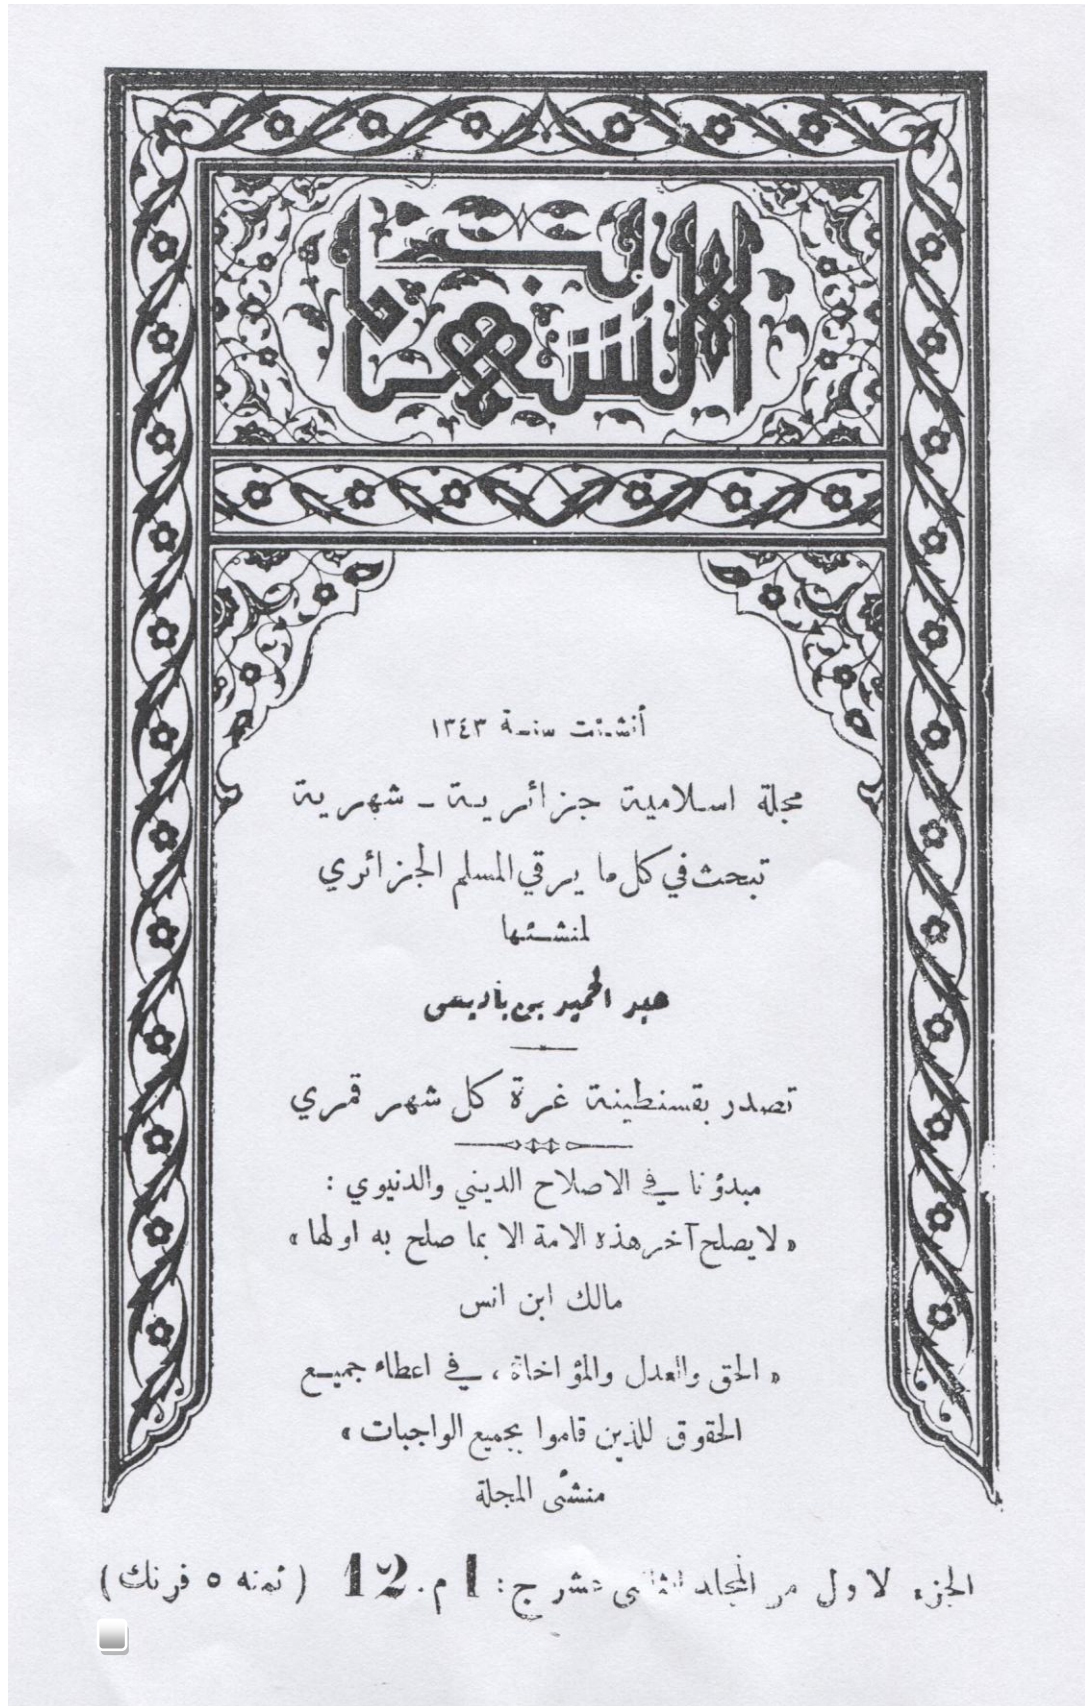 الشهاب
أنشئت سنة ١٣٤٣
مجلة اسلامية جزائرية - شهرية
تبحث في كل ما يرقي المسلم الجزائري
لمنشئها
عبد الحميد بن باديس
تصدر بقسنطينة غرة كل شهر قمري
مبدؤنا في الاصلاح الديني والدنيوي :
« لا يصلح آخر هذه الامة الا بما صلح به اولها »
مالك ابن انس
« الحق والعدل والمؤاخاة ، في اعطاء جميع
الحقوق للذين قاموا بجميع الواجبات »
منشئ المجلة
الجزء لاول من المجلد الثاني عشر ج: 1 م. 12 ( ثمنه ٥ فرنك )